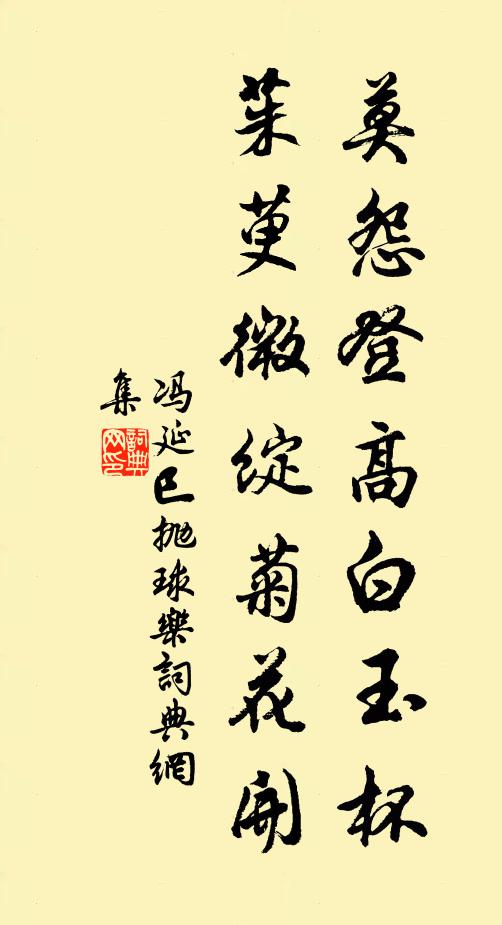 莫怨登高白玉杯
茱萸微綻菊花開
冯延巳抛球樂詞典網
集
詞典
网印